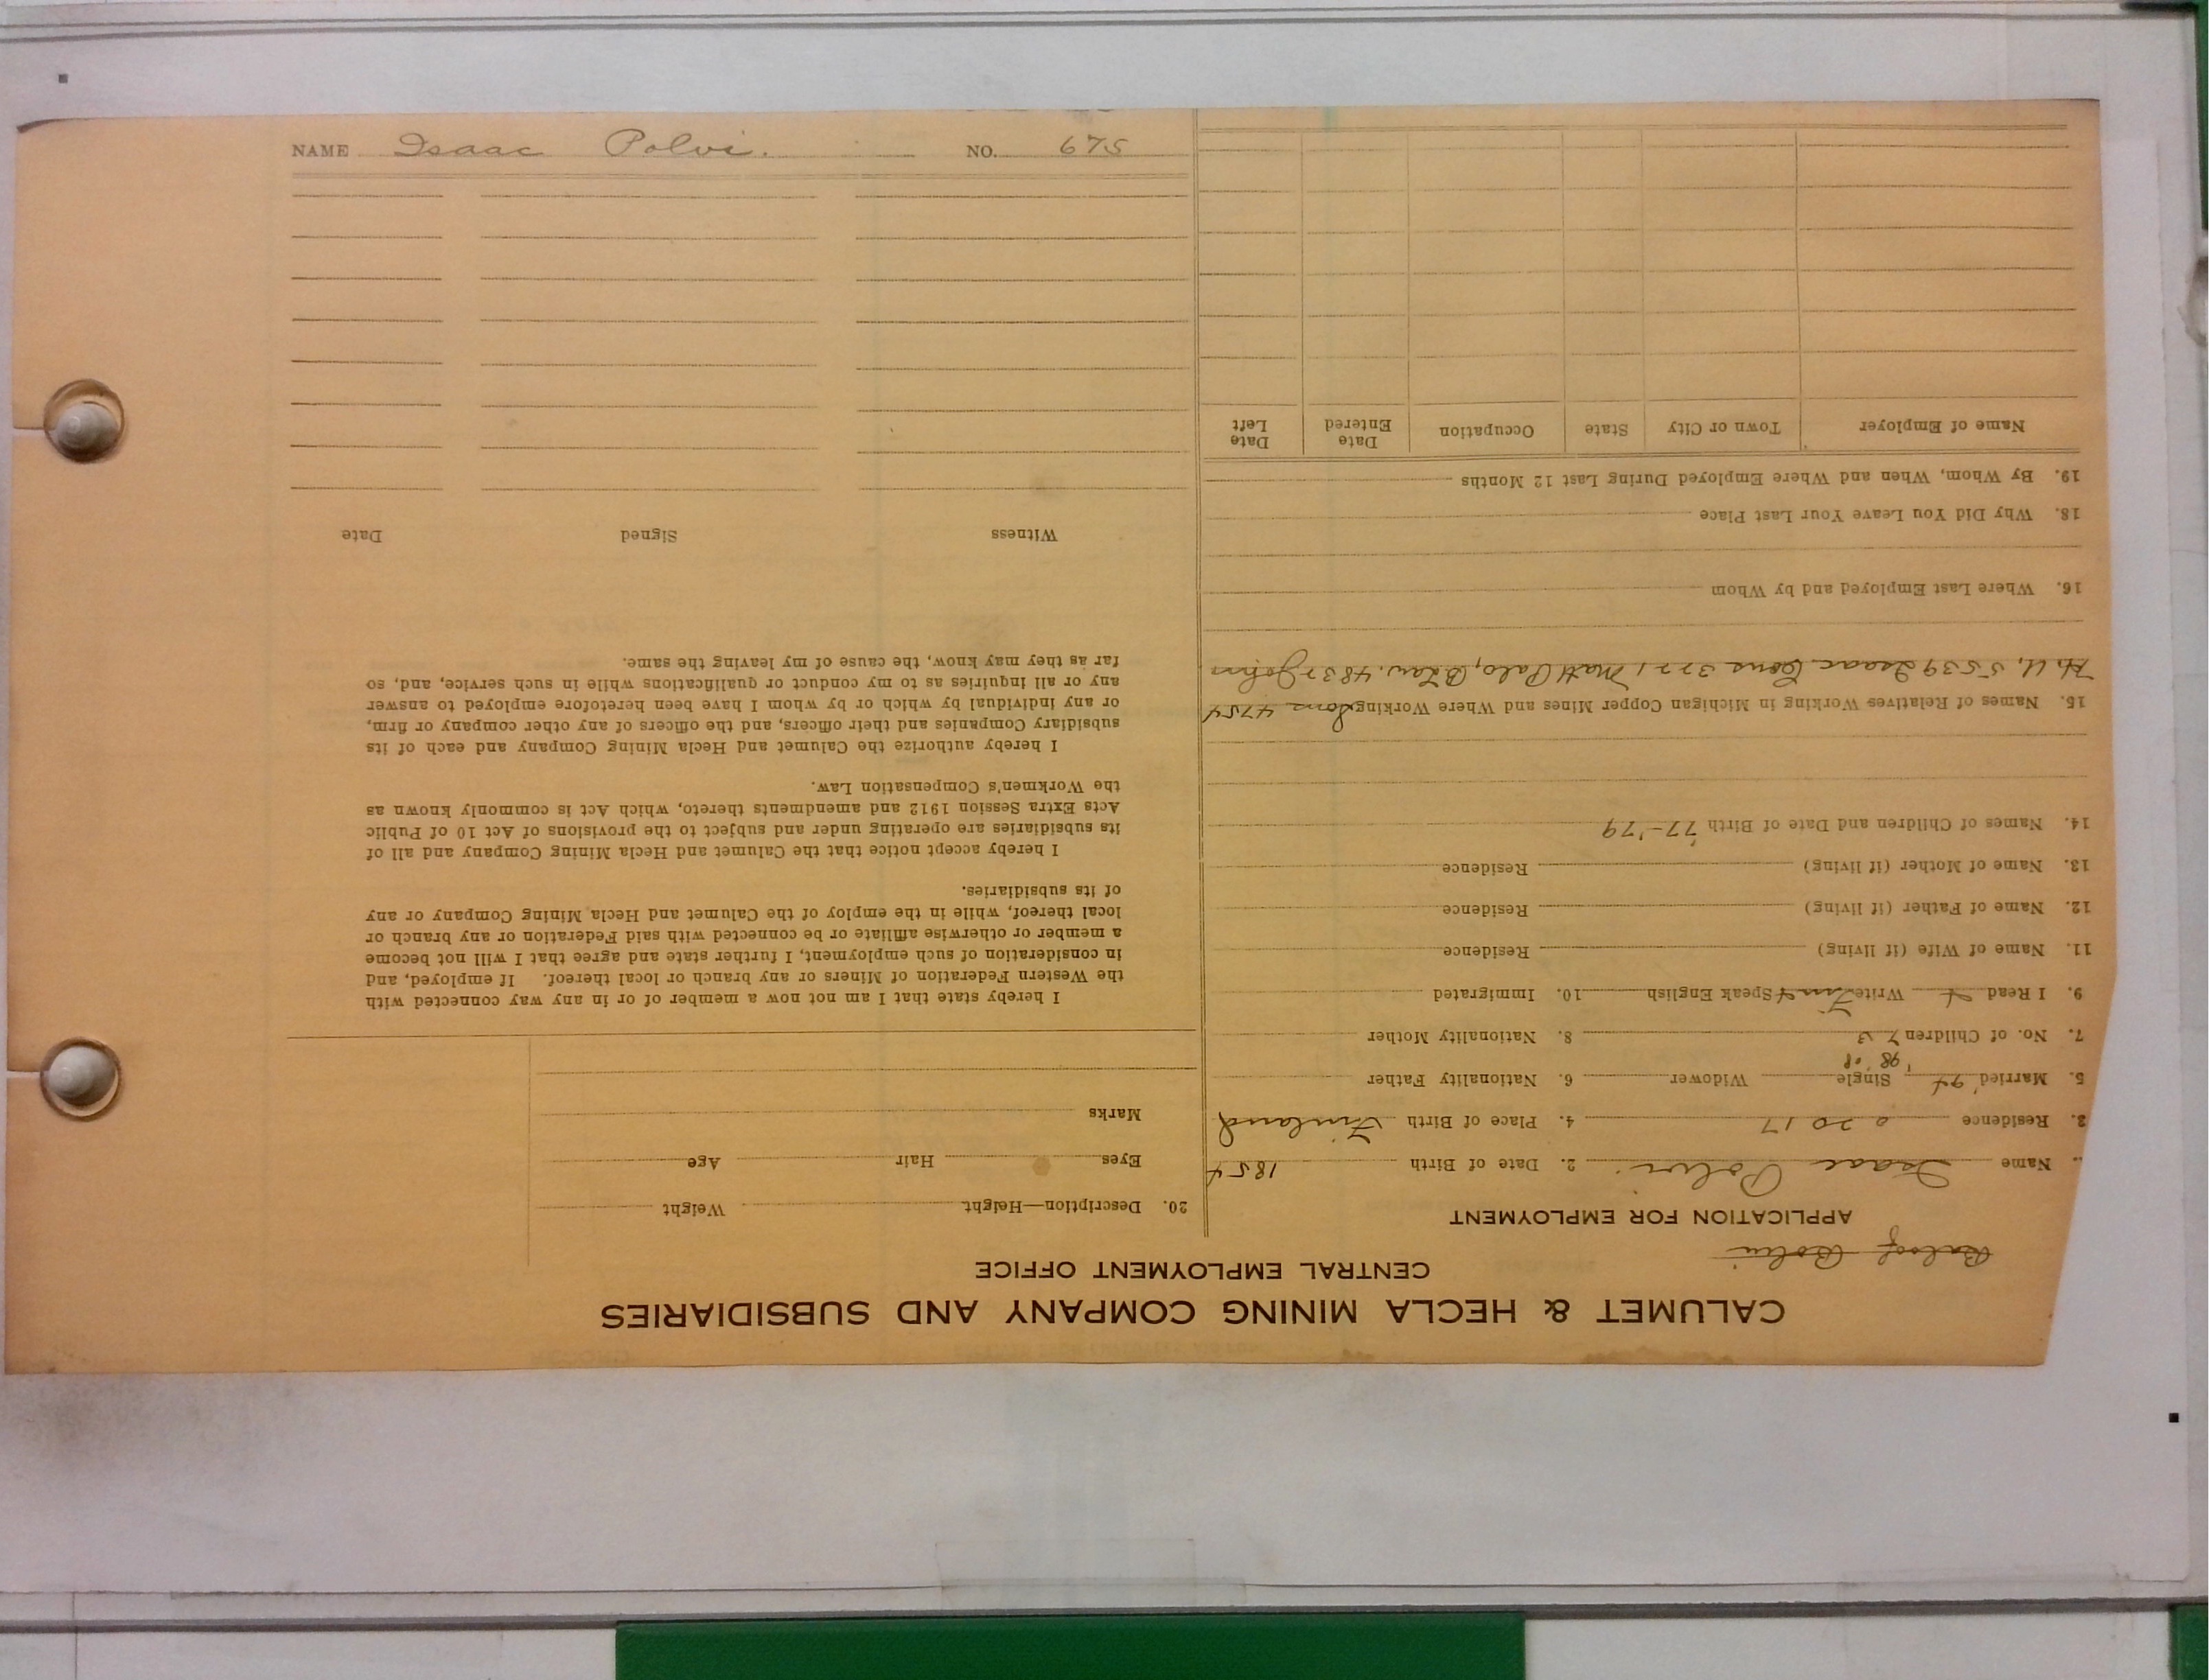 CALUMET & HECLA MINING COMPANY AND SUBSIDIARIES
CENTRAL EMPLOYMENT OFFICE
APPLICATION FOR EMPLOYMENT
Name Isaac Polvi 2. Date of Birth 1854
3. Residence 2017 4. Place of Birth Finland
5. Married '94 Single Widower 6. Nationality Father
'98
7. No. of Children 7 3 8. Nationality Mother
9. I Read Write Finn Speak English 10. Immigrated
11. Name of Wife (if living) Residence
12. Name of Father (if living) Residence
13. Name of Mother (if living) Residence
14. Names of Children and Date of Birth '77-'79
15. Names of Relatives Working in Michigan Copper Mines and Where Working Sons 4754
H. U. 5539 Isaac 3221 Matt Palo, B Law. 4832 John
16. Where Last Employed and by Whom
18. Why Did You Leave Your Last Place
19. By Whom, When and Where Employed During Last 12 Months
Name of Employer Town or City State Occupation Date Entered Date Left
20. Description—Height Weight
Eyes Hair Age
Marks
I hereby state that I am not now a member of or in any way connected with
the Western Federation of Miners or any branch or local thereof. If employed, and
in consideration of such employment, I further state and agree that I will not become
a member or otherwise affiliate or be connected with said Federation or any branch or
local thereof, while in the employ of the Calumet and Hecla Mining Company or any
of its subsidiaries.
I hereby accept notice that the Calumet and Hecla Mining Company and all of
its subsidiaries are operating under and subject to the provisions of Act 10 of Public
Acts Extra Session 1912 and amendments thereto, which Act is commonly known as
the Workmen's Compensation Law.
I hereby authorize the Calumet and Hecla Mining Company and each of its
subsidiary Companies and their officers, and the officers of any other company or firm,
or any individual by which or by whom I have been heretofore employed to answer
any or all inquiries as to my conduct or qualifications while in such service, and, so
far as they may know, the cause of my leaving the same.
Witness Signed Date
NAME Isaac Polvi. NO. 675